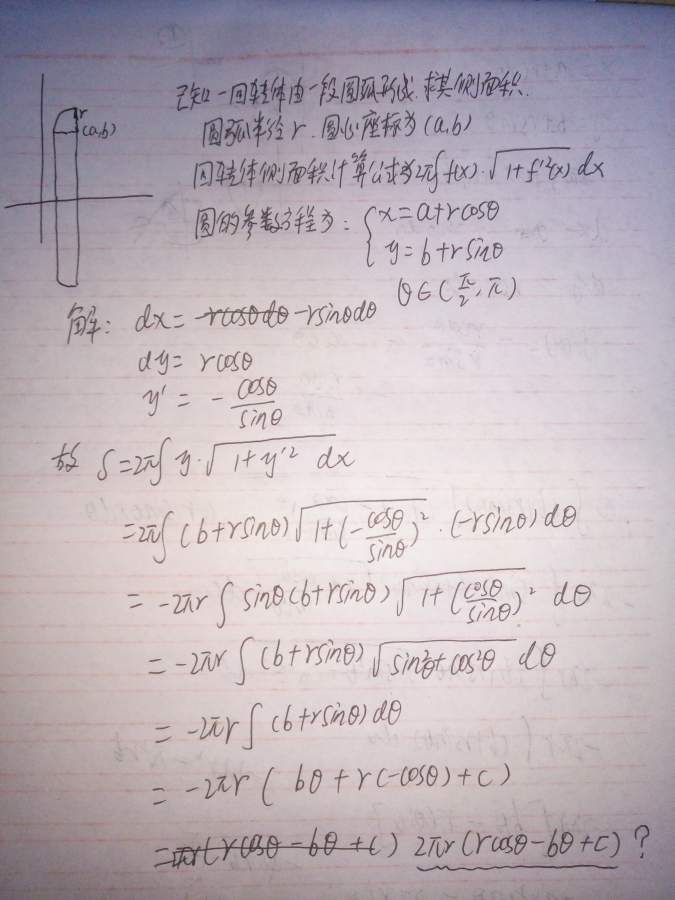 已知一回转体由一段圆弧形成.求其侧面积.
r
(a,b)
圆弧半径r.圆心座标为(a,b)
回转体侧面积计算公式为2π∫f(x)·√(1+f'²(x)) dx
圆的参数方程为: { x=a+rcosθ
y=b+rsinθ
θ∈(π/2,π)
解: dx= rcosθdθ -rsinθdθ
dy= rcosθ
y' = - cosθ/sinθ
故 S=2π∫ y·√(1+y'² dx)
=2π∫ (b+rsinθ)√(1+(-cosθ/sinθ)²)·(-rsinθ)dθ
= -2πr ∫ sinθ(b+rsinθ)√(1+(cosθ/sinθ)²) dθ
= -2πr ∫ (b+rsinθ)√(sin²θ+cos²θ) dθ
= -2πr ∫ (b+rsinθ)dθ
= -2πr ( bθ + r(-cosθ)+c)
= πr(rcosθ - bθ + c) 2πr(rcosθ-bθ+c) ?